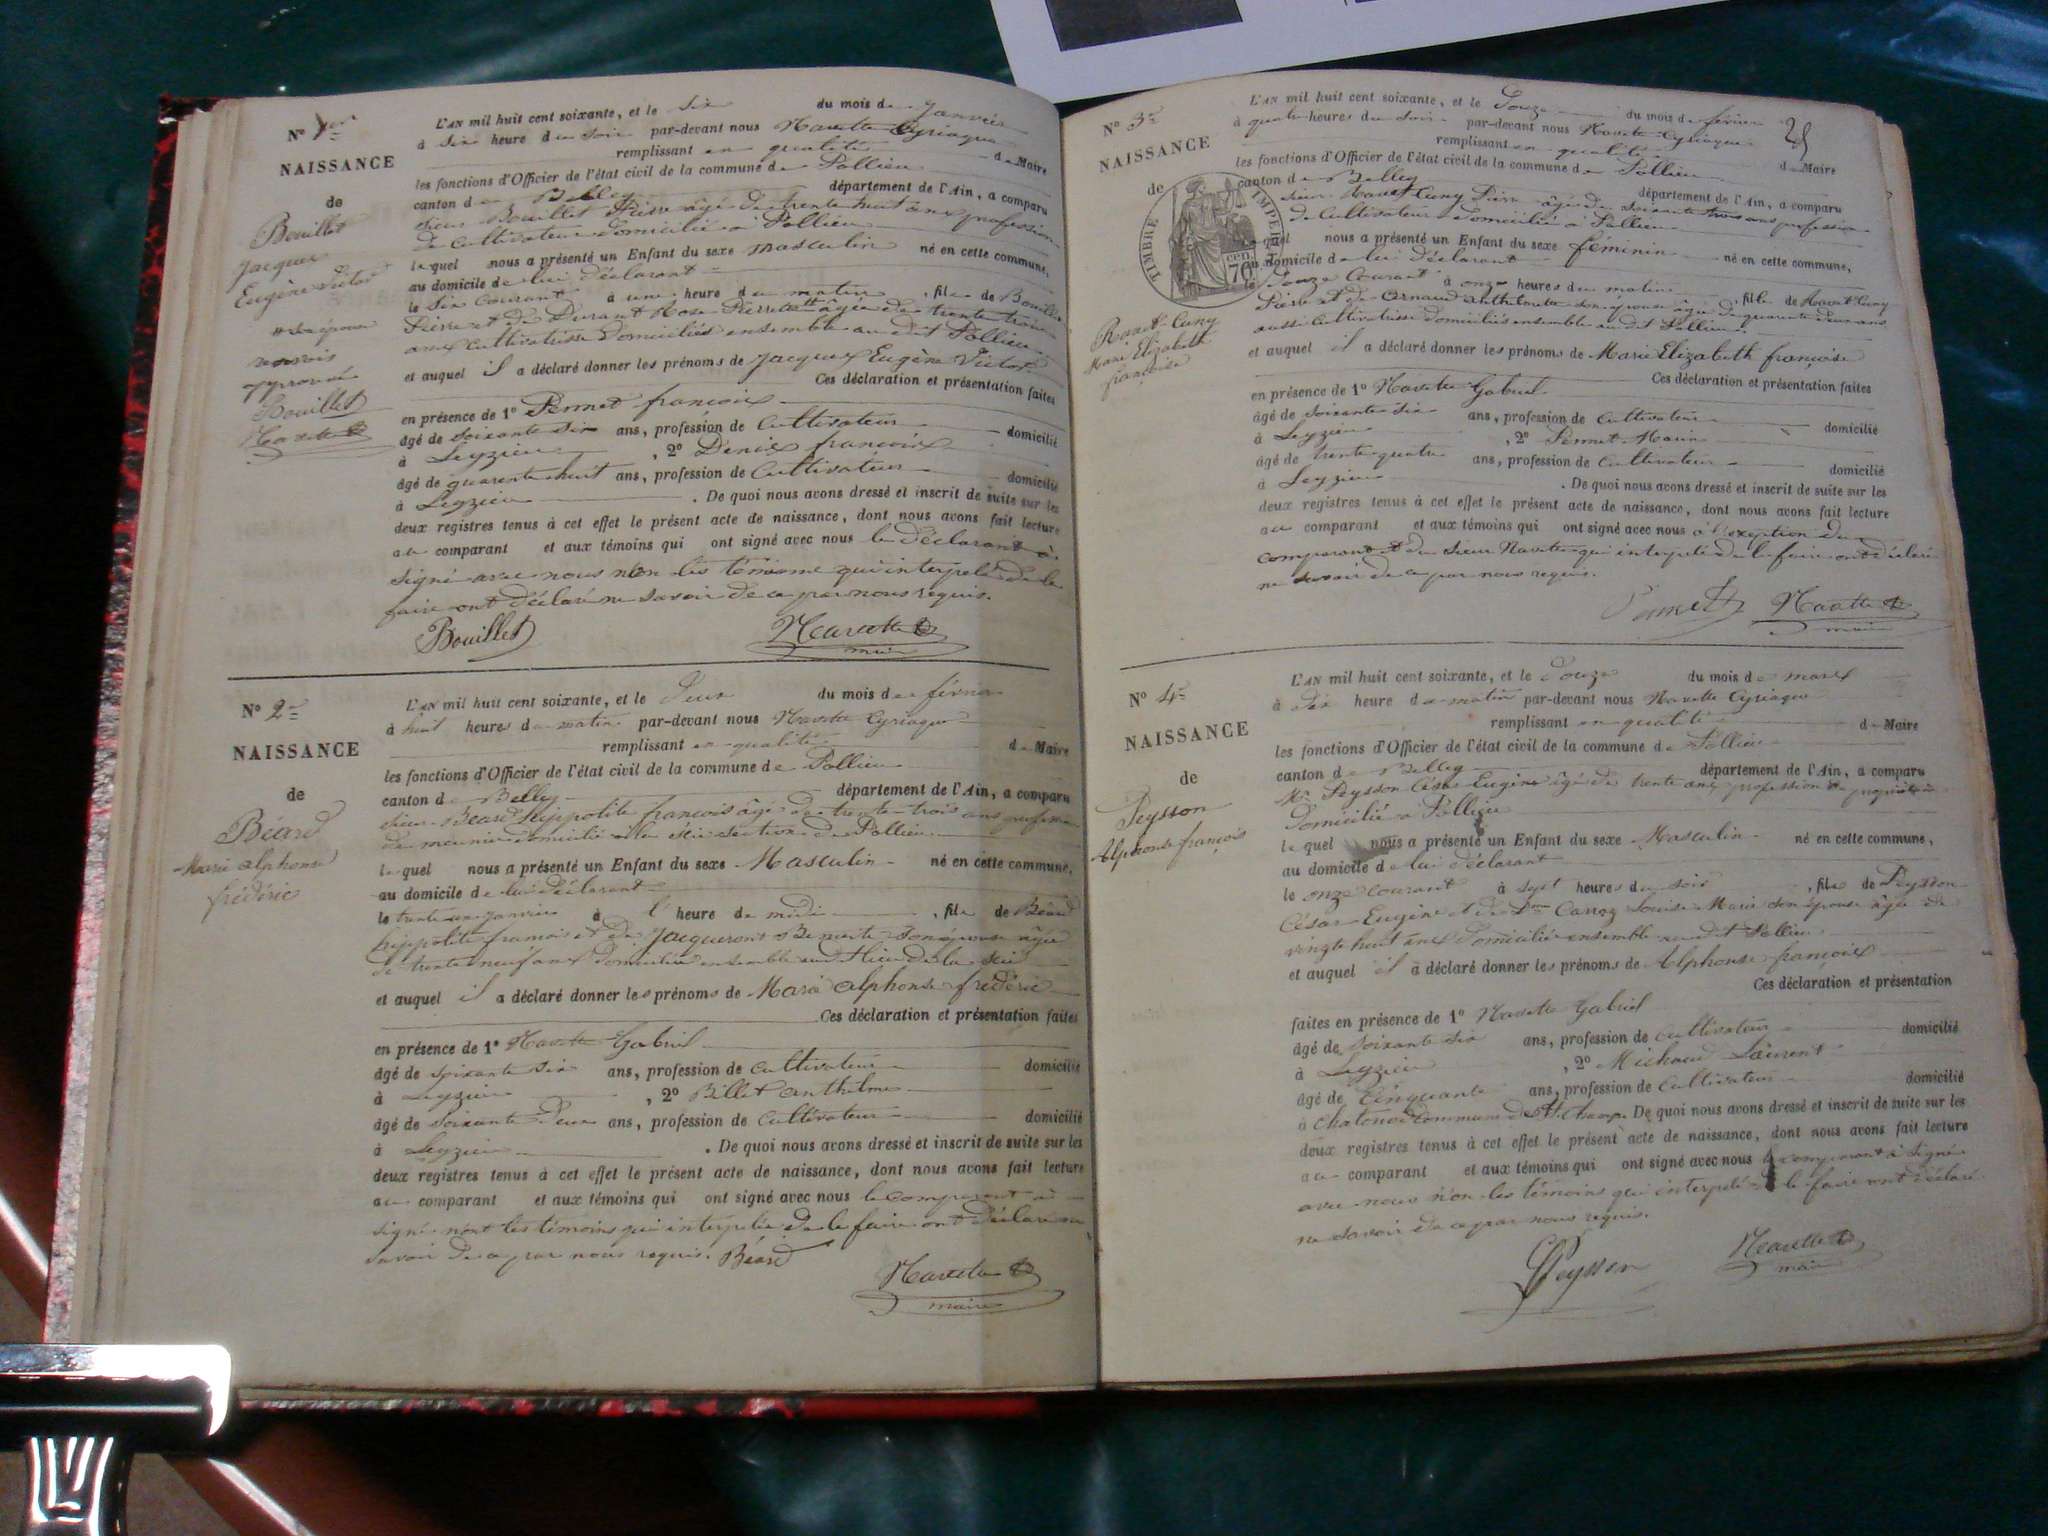 N° 1er
NAISSANCE
de
Bouillet
Jacques
Eugène Victor
son épouse
renvois
approuvé
Bouillet
Navette
L'AN mil huit cent soixante, et le six du mois de Janvier
à six heure du soir par-devant nous Navette Cyriaque
remplissant en qualité de Maire
les fonctions d'Officier de l'état civil de la commune de Pollieu
canton de Belley département de l'Ain, a comparu
sieur Bouillet Pierre âgé de trente huit ans profession
de cultivateur domicilié à Pollieu
lequel nous a présenté un Enfant du sexe masculin né en cette commune,
au domicile de lui déclarant
le six courant à une heure du matin, fils de Bouillet
Pierre et de Durant Rose Pierrette âgée de trente trois
ans cultivatrice domiciliés ensemble au dit Pollieu
et auquel il a déclaré donner les prénoms de Jacques Eugène Victor
Ces déclaration et présentation faites
en présence de 1° Pernet françois
âgé de soixante six ans, profession de cultivateur domicilié
à Leyzieu, 2° Denix françois
âgé de quarente huit ans, profession de cultivateur domicilié
à Leyzieu. De quoi nous avons dressé et inscrit de suite sur les
deux registres tenus à cet effet le présent acte de naissance, dont nous avons fait lecture
au comparant et aux témoins qui ont signé avec nous le déclarant à
signé avec nous non les témoins qui interpelé de le
faire ont déclaré ne savoir de ce par nous requis.
Bouillet Navette
maire
N° 2e
NAISSANCE
de
Béard
Marie alphonse
frédéric
L'AN mil huit cent soixante, et le Deux du mois de février
à huit heures du matin par-devant nous Navette Cyriaque
remplissant en qualité de Maire
les fonctions d'Officier de l'état civil de la commune de Pollieu
canton de Belley département de l'Ain, a comparu
sieur Béard hippolite françois âgé de trente trois ans profession
de meunier domicilié à la scie section de Pollieu
lequel nous a présenté un Enfant du sexe Masculin né en cette commune,
au domicile de lui déclarant
le trente un janvier à l'heure de midi, fils de Béard
hippolite francois et de Jacqueront son épouse âgée
de trente neuf ans domiciliés ensemble au dit lieu de la scie
et auquel il a déclaré donner les prénoms de Marie alphonse frédéric
Ces déclaration et présentation faites
en présence de 1° Navette Gabriel
âgé de soixante six ans, profession de cultivateur domicilié
à Leyzieu, 2° Billet anthelme
âgé de soixante Deux ans, profession de cultivateur domicilié
à Leyzieu. De quoi nous avons dressé et inscrit de suite sur les
deux registres tenus à cet effet le présent acte de naissance, dont nous avons fait lecture
au comparant et aux témoins qui ont signé avec nous le comparant à
signé non les témoins qui interpelé de le faire ont déclaré ne
savoir de ce par nous requis. Béard
Navette
maire
25
N° 3e
NAISSANCE
de
TIMBRE IMPERIAL
70 cen
Ravet Cuny
Marie Elizabeth
françoise
L'AN mil huit cent soixante, et le Douze du mois de février
à quatre heures du soir par-devant nous Navette Cyriaque
remplissant en qualité de Maire
les fonctions d'Officier de l'état civil de la commune de Pollieu
canton de Belley département de l'Ain, a comparu
sieur Ravet Cuny Pierre âgé de soixante trois ans profession
de cultivateur domicilié à Pollieu
lequel nous a présenté un Enfant du sexe féminin né en cette commune,
au domicile de lui déclarant
le Douze Courant à onze heures du matin, fille de Ravet Cuny
Pierre et de Arnaud anthelmette son épouse âgée de quarante deux ans
aussi cultivatrice domiciliés ensemble au dit Pollieu
et auquel il a déclaré donner les prénoms de Marie Elizabeth françoise
Ces déclaration et présentation faites
en présence de 1° Navette Gabriel
âgé de soixante six ans, profession de cultivateur domicilié
à Leyzieu, 2° Pernet Marin
âgé de trente quatre ans, profession de cultivateur domicilié
à Leyzieu. De quoi nous avons dressé et inscrit de suite sur les
deux registres tenus à cet effet le présent acte de naissance, dont nous avons fait lecture
au comparant et aux témoins qui ont signé avec nous à l'exeption du
comparant et du sieur Navette qui interpelé de le faire ont déclaré
ne savoir de ce par nous requis.
Pernet Navette
maire
N° 4e
NAISSANCE
de
Peysson
Alphonse françois
L'AN mil huit cent soixante, et le douze du mois de mars
à dix heure du matin par-devant nous Navette Cyriaque
remplissant en qualité de Maire
les fonctions d'Officier de l'état civil de la commune de Pollieu
canton de Belley département de l'Ain, a comparu
Mr Peysson César Eugène âgé de trente ans profession de propriétaire
domicilié à Pollieu
lequel nous a présenté un Enfant du sexe Masculin né en cette commune,
au domicile de lui déclarant
le onze courant à sept heures du soir, fils de Peysson
César Eugène et de Dme Carroz Louise Marie son épouse âgée de
vingte huit ans domiciliés ensemble au dit Pollieu
et auquel il a déclaré donner les prénoms de Alphonse françois
Ces déclaration et présentation
faites en présence de 1° Navette Gabriel
âgé de soixante six ans, profession de cultivateur domicilié
à Leyzieu, 2° Michaud Laurent
âgé de Cinquante ans, profession de cultivateur domicilié
à Chatonod commune de St Champ. De quoi nous avons dressé et inscrit de suite sur les
deux registres tenus à cet effet le présent acte de naissance, dont nous avons fait lecture
au comparant et aux témoins qui ont signé avec nous le comparant à signé
avec nous non les témoins qui interpelé de le faire ont déclaré
ne savoir de ce par nous requis.
Peysson Navette
maire